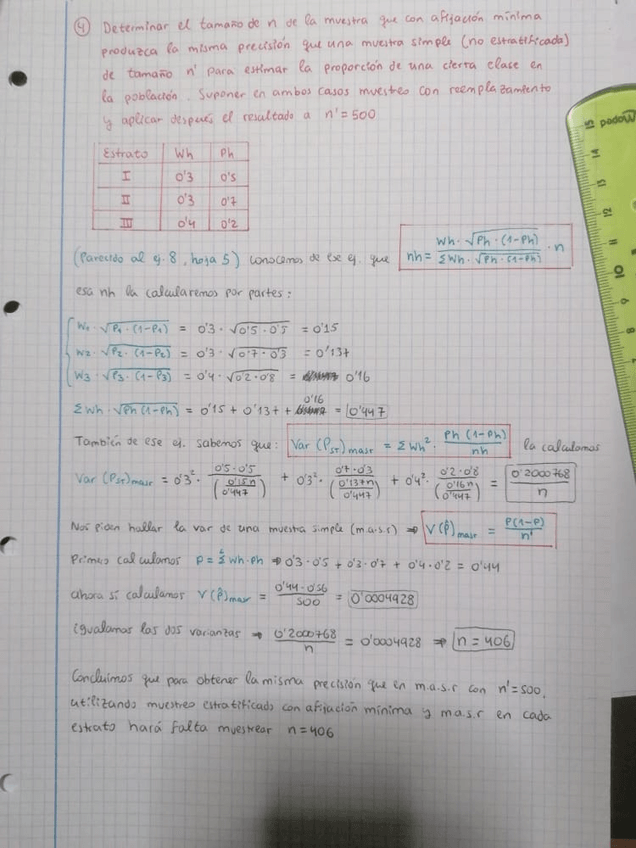 ④ Determinar el tamaño de n de la muestra que con afijación mínima
produzca la misma precisión que una muestra simple (no estratificada)
de tamaño n' para estimar la proporción de una cierta clase en
la población. Suponer en ambos casos muestreo con reemplazamiento
y aplicar después el resultado a n'=500
Estrato Wh Ph
I 0'3 0's
II 0'3 0'7
III 0'4 0'2
(Parecido al ej. 8, hoja 5) Conocemos de ese ej. que nh = Wh·√Ph·(1-Ph) / ΣWh·√Ph·(1-Ph) · n
esa nh la calcularemos por partes:
W₁·√P₁·(1-P₁) = 0'3·√0'5·0'5 = 0'15
W₂·√P₂·(1-P₂) = 0'3·√0'7·0'3 = 0'137
W₃·√P₃·(1-P₃) = 0'4·√0'2·0'8 = 0'16
ΣWh·√Ph(1-Ph) = 0'15 + 0'137 + 0'16 = 0'447
También de ese ej. sabemos que: Var(P_ST)masr = ΣWh²· Ph(1-Ph) / nh la calculamos
Var(P_ST)masr = 0'3²· 0'5·0'5 / (0'15n / 0'447) + 0'3²· 0'7·0'3 / (0'137n / 0'447) + 0'4²· 0'2·0'8 / (0'16n / 0'447) = 0'2000768 / n
Nos piden hallar la var de una muestra simple (m.a.s.r) ⇒ V(P̂)masr = P(1-P) / n'
Primero calculamos P = ΣWh·Ph ⇒ 0'3·0'5 + 0'3·0'7 + 0'4·0'2 = 0'44
ahora sí calculamos V(P̂)masr = 0'44·0'56 / 500 = 0'0004928
Igualamos las dos varianzas ⇒ 0'2000768 / n = 0'0004928 ⇒ n = 406
Concluimos que para obtener la misma precisión que en m.a.s.r con n'=500,
utilizando muestreo estratificado con afijación mínima y m.a.s.r en cada
estrato hará falta muestrear n=406
Maped 15
14
13
12
11
10
9
8